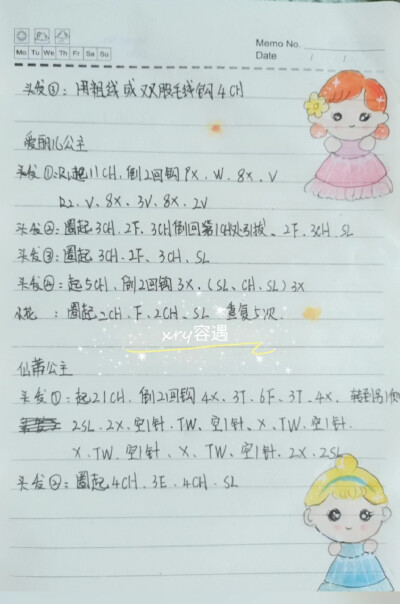 Memo No.
Mo Tu We Th Fr Sa Su
Date / /
头发③: 用粗线或双股毛线钩4CH
爱丽儿公主
头发①: R1起11CH, 倒2回钩9X、W、8X、V
R2、V、8X、3V、8X、2V
头发②: 圈起3CH、2F、3CH倒回第1CH处引拔、2F、3CH、SL
头发③: 圈起3CH、2F、3CH、SL
头发④: 起5CH, 倒2回钩3X、(SL、CH、SL)3X
小花: 圈起2CH、F、2CH、SL 重复5次
xry容遇
仙蒂公主
头发①: 起21CH, 倒2回钩4X、3T、6F、3T、4X、转到另1侧
2SL、2X、空1针、TW、空1针、X、TW、空1针、
X、TW、空1针、X、TW、空1针、2X、2SL
头发②: 圈起4CH、3E、4CH、SL